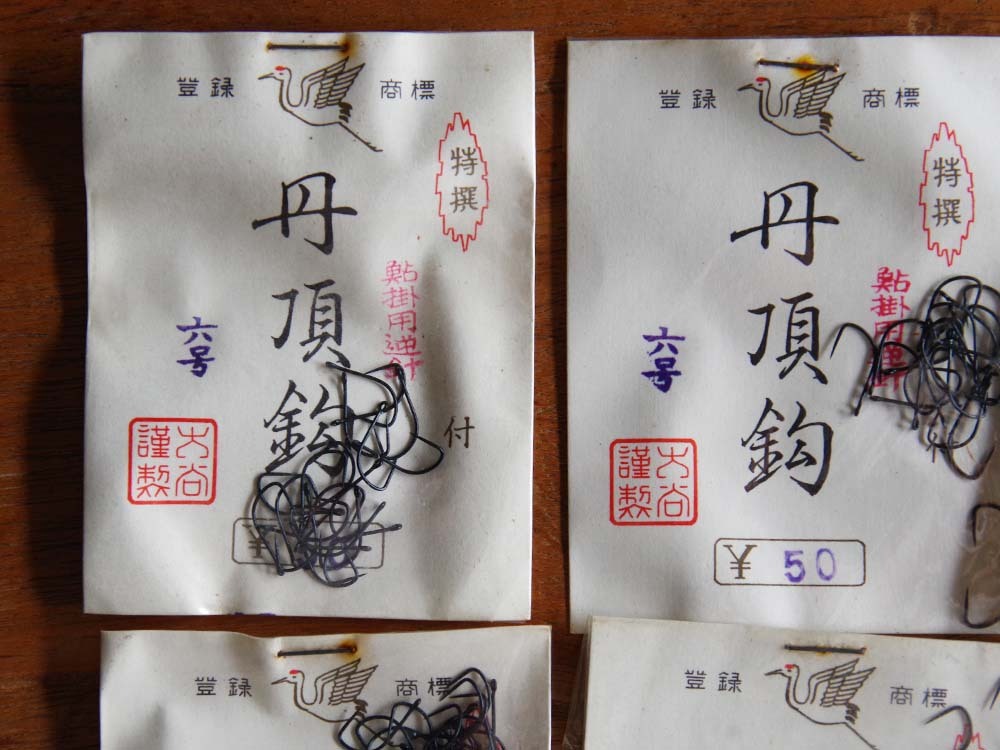 登録 商標
特撰
丹頂鈎
鮎掛用逆針
六号
大谷
謹製
付
¥
登録 商標
特撰
丹頂鈎
鮎掛用逆針
六号
大谷
謹製
¥ 50
登録 商標
登録 商標